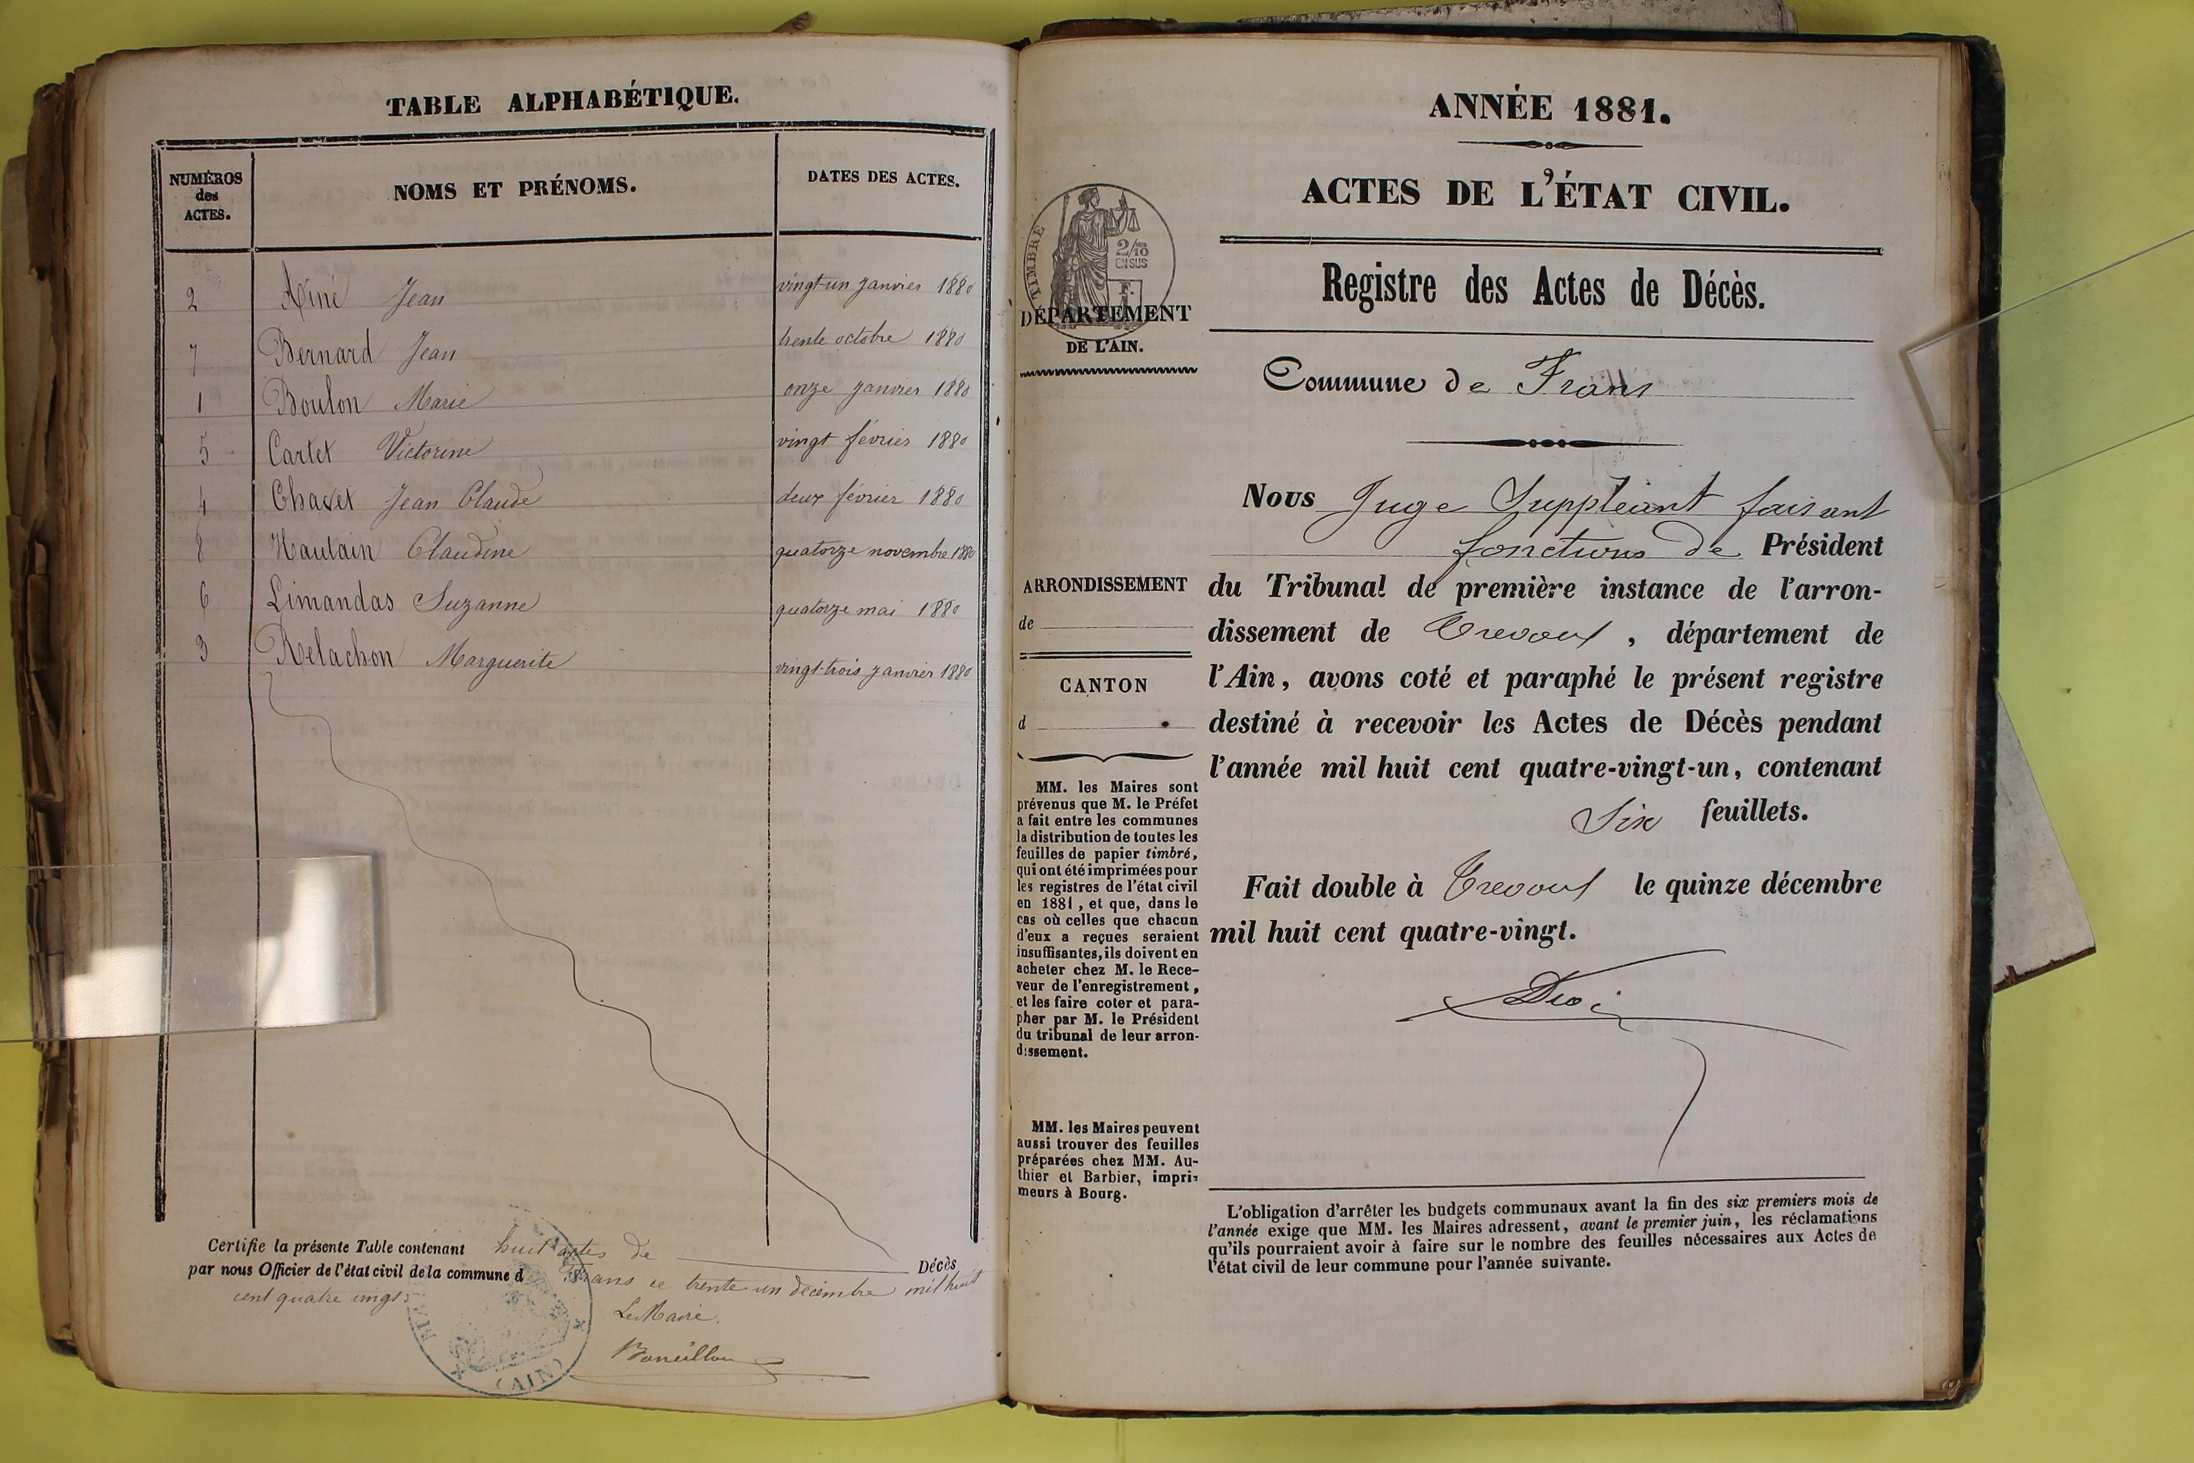 TABLE ALPHABÉTIQUE.
NUMÉROS des ACTES.
NOMS ET PRÉNOMS.
DATES DES ACTES.
2 Jean vingt-un janvier 1880
7 Bernard Jean trente octobre 1880
1 Boulon Marie onze janvier 1880
5 Cartet Victorine vingt février 1880
4 Chavet Jean Claude deux février 1880
8 Hautain Claudine quatorze novembre 1880
6 Limandas Suzanne quatorze mai 1880
3 Relachon Marguerite vingt-trois janvier 1880
Certifie la présente Table contenant huit actes de Décès
par nous Officier de l'état civil de la commune d Frans ce trente un décembre mil huit
cent quatre vingt
Le Maire.
(AIN)
ANNÉE 1881.
ACTES DE L'ÉTAT CIVIL.
TIMBRE
2/10
EN SUS
DÉPARTEMENT
DE L'AIN.
Registre des Actes de Décès.
Commune de Frans
Nous Juge Suppléant faisant
fonctions de Président
du Tribunal de première instance de l'arron-
dissement de Trevoux, département de
l'Ain, avons coté et paraphé le présent registre
destiné à recevoir les Actes de Décès pendant
l'année mil huit cent quatre-vingt-un, contenant
Six feuillets.
Fait double à Trevoux le quinze décembre
mil huit cent quatre-vingt.
ARRONDISSEMENT
de
CANTON
d
MM. les Maires sont
prévenus que M. le Préfet
a fait entre les communes
la distribution de toutes les
feuilles de papier timbré,
qui ont été imprimées pour
les registres de l'état civil
en 1881, et que, dans le
cas où celles que chacun
d'eux a reçues seraient
insuffisantes, ils doivent en
acheter chez M. le Rece-
veur de l'enregistrement,
et les faire coter et para-
pher par M. le Président
du tribunal de leur arron-
dissement.
MM. les Maires peuvent
aussi trouver des feuilles
préparées chez MM. Au-
thier et Barbier, impri-
meurs à Bourg.
L'obligation d'arrêter les budgets communaux avant la fin des six premiers mois de
l'année exige que MM. les Maires adressent, avant le premier juin, les réclamations
qu'ils pourraient avoir à faire sur le nombre des feuilles nécessaires aux Actes de
l'état civil de leur commune pour l'année suivante.